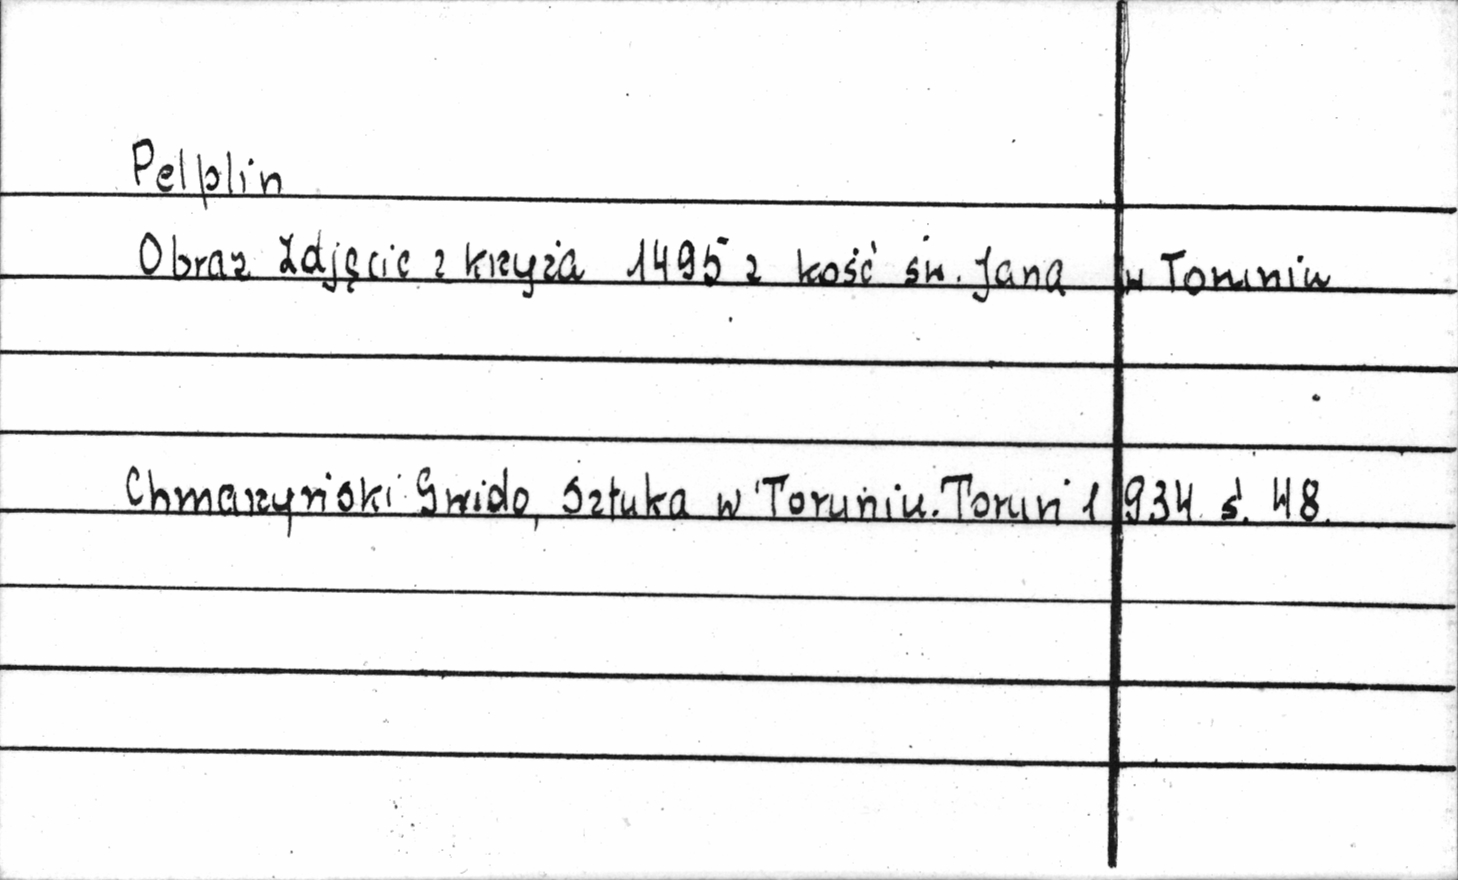 Pelplin
Obraz Zdjęcie z krzyża 1495 z kość św. Jana w Toruniu
Chmarzyński Gwido, Sztuka w Toruniu. Toruń 1934 s. 48.